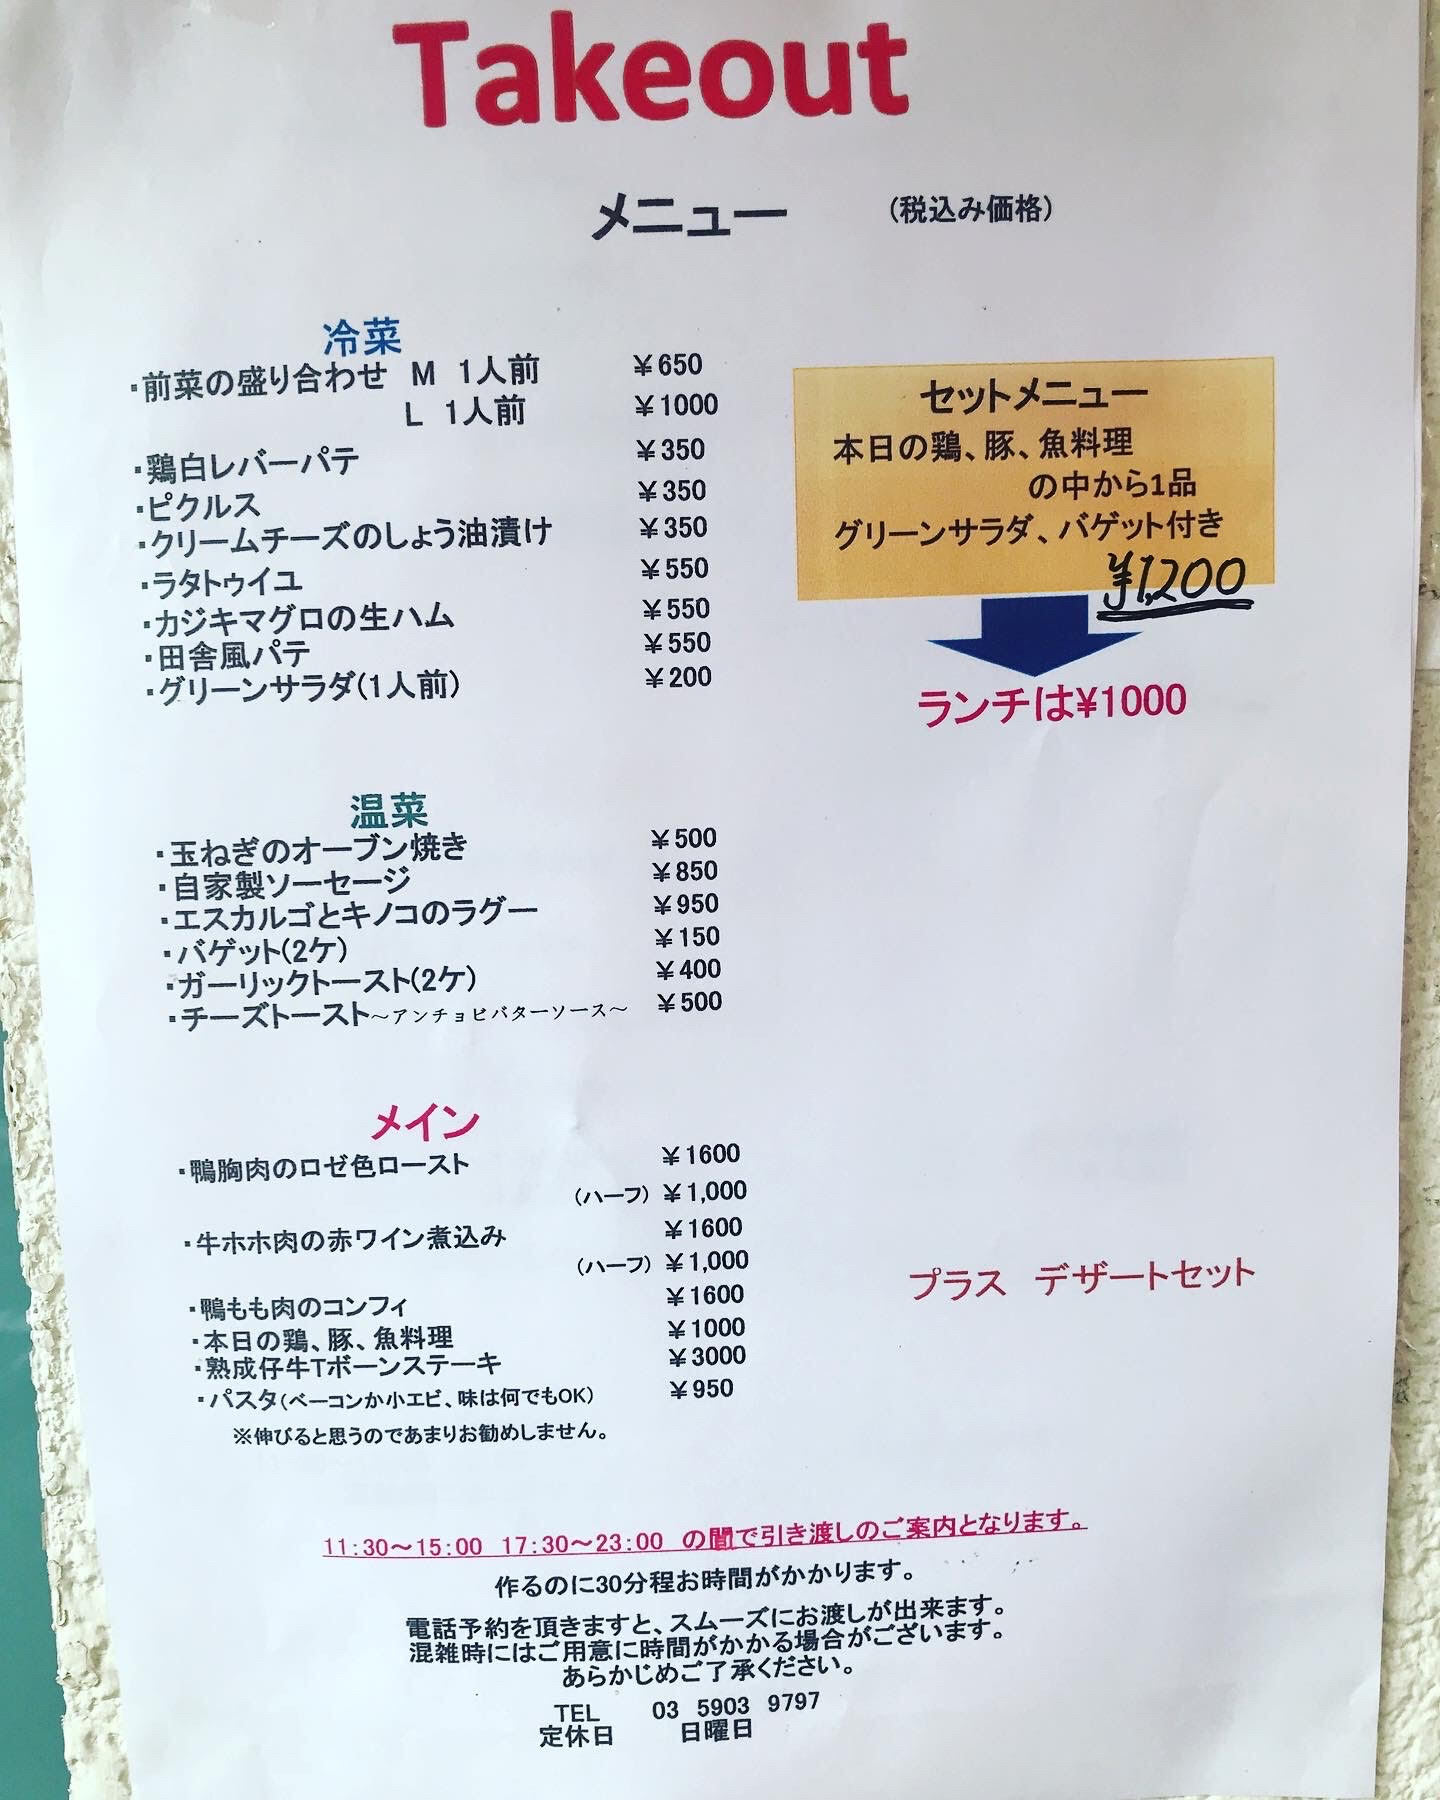 Takeout
メニュー (税込み価格)
冷菜
・前菜の盛り合わせ M 1人前 ¥650
L 1人前 ¥1000
・鶏白レバーパテ ¥350
・ピクルス ¥350
・クリームチーズのしょう油漬け ¥350
・ラタトゥイユ ¥550
・カジキマグロの生ハム ¥550
・田舎風パテ ¥550
・グリーンサラダ(1人前) ¥200
セットメニュー
本日の鶏、豚、魚料理
の中から1品
グリーンサラダ、バゲット付き
¥1,200
ランチは¥1000
温菜
・玉ねぎのオーブン焼き ¥500
・自家製ソーセージ ¥850
・エスカルゴとキノコのラグー ¥950
・バゲット(2ケ) ¥150
・ガーリックトースト(2ケ) ¥400
・チーズトースト～アンチョビバターソース～ ¥500
メイン
・鴨胸肉のロゼ色ロースト ¥1600
(ハーフ) ¥1,000
・牛ホホ肉の赤ワイン煮込み ¥1600
(ハーフ) ¥1,000
・鴨もも肉のコンフィ ¥1600
・本日の鶏、豚、魚料理 ¥1000
・熟成仔牛Tボーンステーキ ¥3000
・パスタ(ベーコンか小エビ、味は何でもOK) ¥950
※伸びると思うのであまりお勧めしません。
プラス デザートセット
11:30～15:00 17:30～23:00 の間で引き渡しのご案内となります。
作るのに30分程お時間がかかります。
電話予約を頂きますと、スムーズにお渡しが出来ます。
混雑時にはご用意に時間がかかる場合がございます。
あらかじめご了承ください。
TEL 03 5903 9797
定休日 日曜日